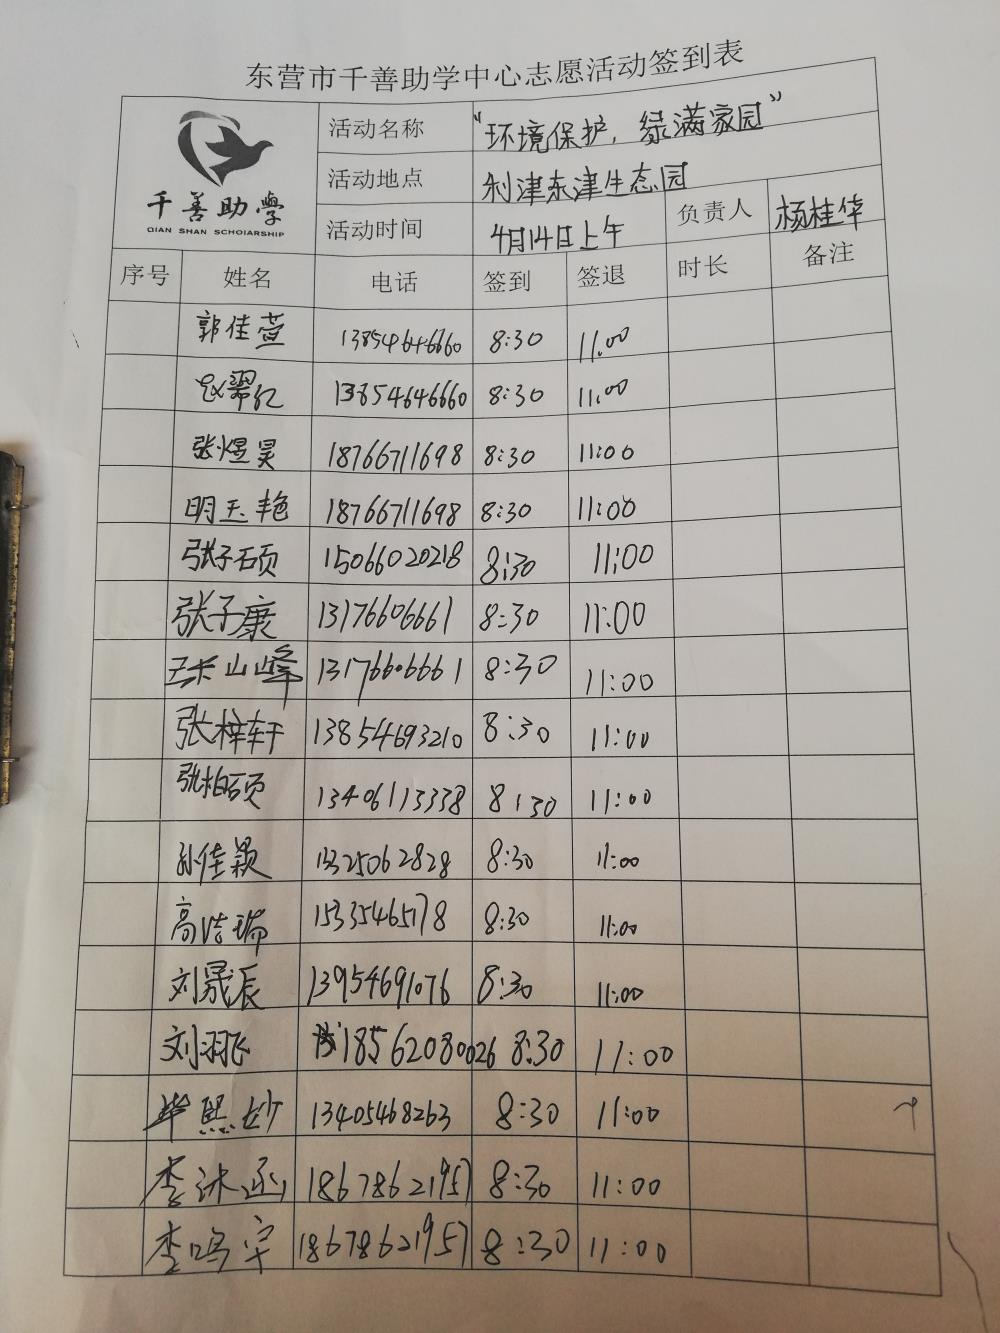 东营市千善助学中心志愿活动签到表
千善助學
QIAN SHAN SCHOLARSHIP
活动名称 "环境保护，绿满家园"
活动地点 利津东津生态园
活动时间 4月14日上午 负责人 杨桂华
序号 姓名 电话 签到 签退 时长 备注
郭佳萱 13854646660 8:30 11:00
赵翠红 13854646660 8:30 11:00
张煜昊 18766711698 8:30 11:00
明玉艳 18766711698 8:30 11:00
张子硕 15066020218 8:30 11:00
张子康 13176606661 8:30 11:00
山峰 13176606661 8:30 11:00
张梓轩 13854693210 8:30 11:00
张柏硕 13406113338 8:30 11:00
孙佳颖 13325062828 8:30 11:00
高洁瑞 15335465178 8:30 11:00
刘晟辰 13954691076 8:30 11:00
刘羽飞 18562080026 8:30 11:00
毕熙妙 13405468263 8:30 11:00
李沐函 18678621957 8:30 11:00
李鸣宇 18678621957 8:30 11:00